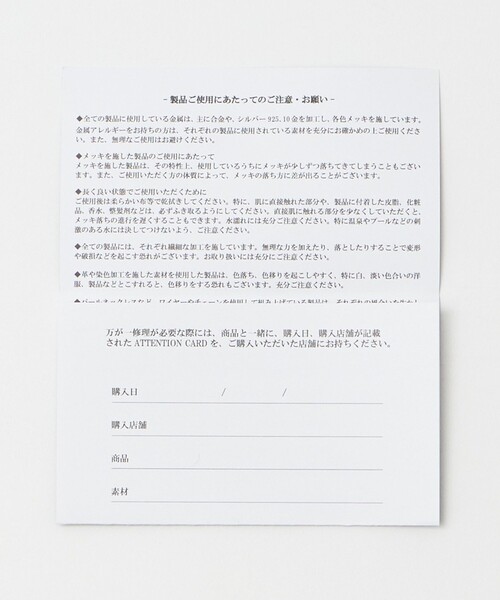 - 製品ご使用にあたってのご注意・お願い -
◆全ての製品に使用している金属は、主に合金や、シルバー925.10金を加工し、各色メッキを施しています。
金属アレルギーをお持ちの方は、それぞれの製品に使用されている素材を充分にお確かめの上ご使用くださ
い。また、無理なご使用はお避けください。
◆メッキを施した製品のご使用にあたって
メッキを施した製品は、その特性上、使用しているうちにメッキが少しずつ落ちてきてしまうこともござい
ます。また、ご使用いただく方の体質によって、メッキの落ち方に差が出ることがございます。
◆長く良い状態でご使用いただくために
ご使用後は柔らかい布等で乾拭きしてください。特に、肌に直接触れた部分や、製品に付着した皮脂、化粧
品、香水、整髪剤などは、必ずふき取るようにしてください。直接肌に触れる部分を少なくしていただくと、
メッキ落ちの進行を遅くすることもできます。水濡れには充分ご注意ください。特に温泉やプールなどの刺
激のある水には決してつけないよう、ご注意ください。
◆全ての製品には、それぞれ繊細な加工を施しています。無理な力を加えたり、落としたりすることで変形
や破損などを起こす恐れがございます。お取り扱いには充分にご注意ください。
◆革や染色加工を施した素材を使用した製品は、色落ち、色移りを起こしやすく、特に白、淡い色合いの洋
服、製品などとこすれると、色移りをする恐れもございます。充分ご注意ください。
◆パールネックレスなど、ワイヤーやチェーンを使用して組み上げている製品は、それぞれの風合いを生かし
万が一修理が必要な際には、商品と一緒に、購入日、購入店舗が記載
された ATTENTION CARD を、ご購入いただいた店舗にお持ちください。
購入日 / /
購入店舗
商品
素材